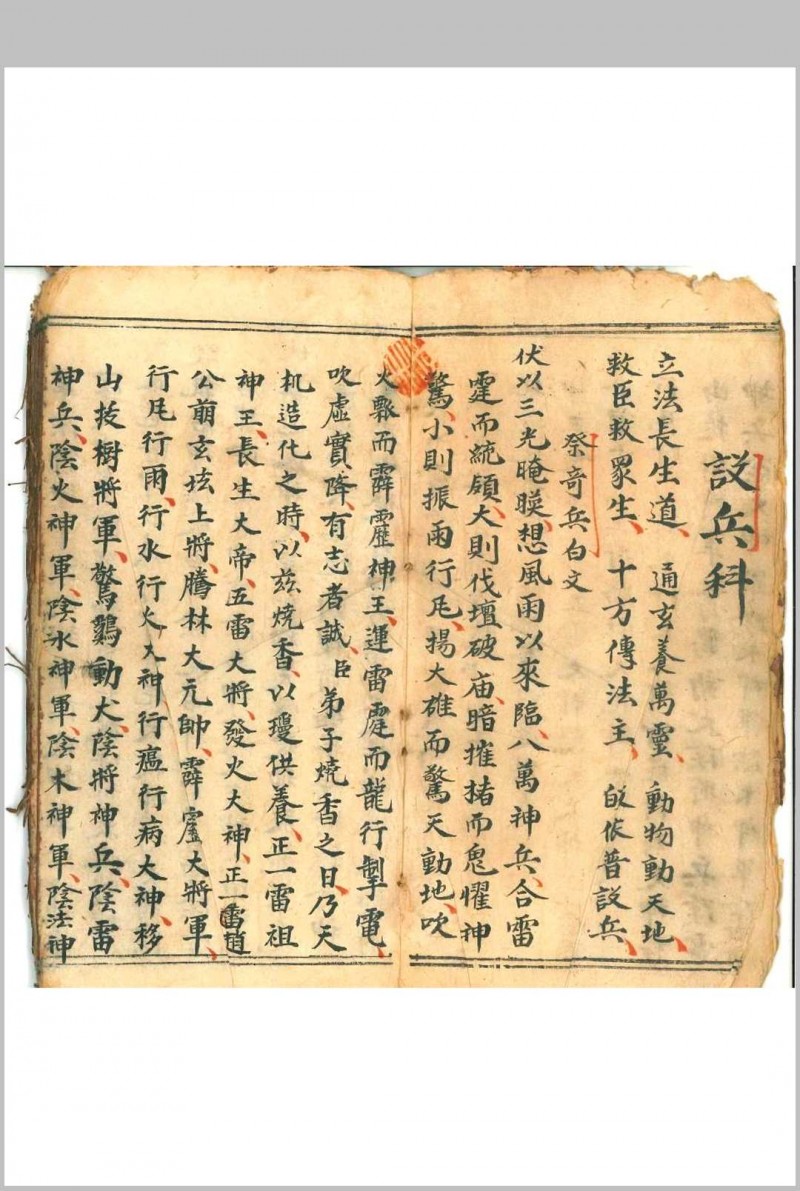 設兵科
立法長生道、通玄養萬靈、動物動天地、
救臣救眾生、十方傳法主、皈依普設兵、
祭奇兵白文
伏以三光晻暎、想風雨以來臨、八萬神兵、合雷
霆而統領、大則伐壇破庙、暗摧
而鬼懼神
驚、小則振雨行風、揚大雄而驚天動地、吹
火飄而霹靂神王、運雷霆而龍行掣電、
吹虛實降、有志者誠、臣弟子燒香之日、乃天
机造化之時、以兹燒香、以瓊供養、正一雷祖
神王、長生大帝、五雷大將、發火大神、正一雷趙
公萠玄坛上將、騰林大元帥、霹靂大將軍、
行風行雨、行水行火大神行瘟行病大神、移
山拔樹將軍、驚鷄動犬、陰將神兵、陰雷
神兵、陰火神軍、陰水神軍、陰木神軍、陰法神